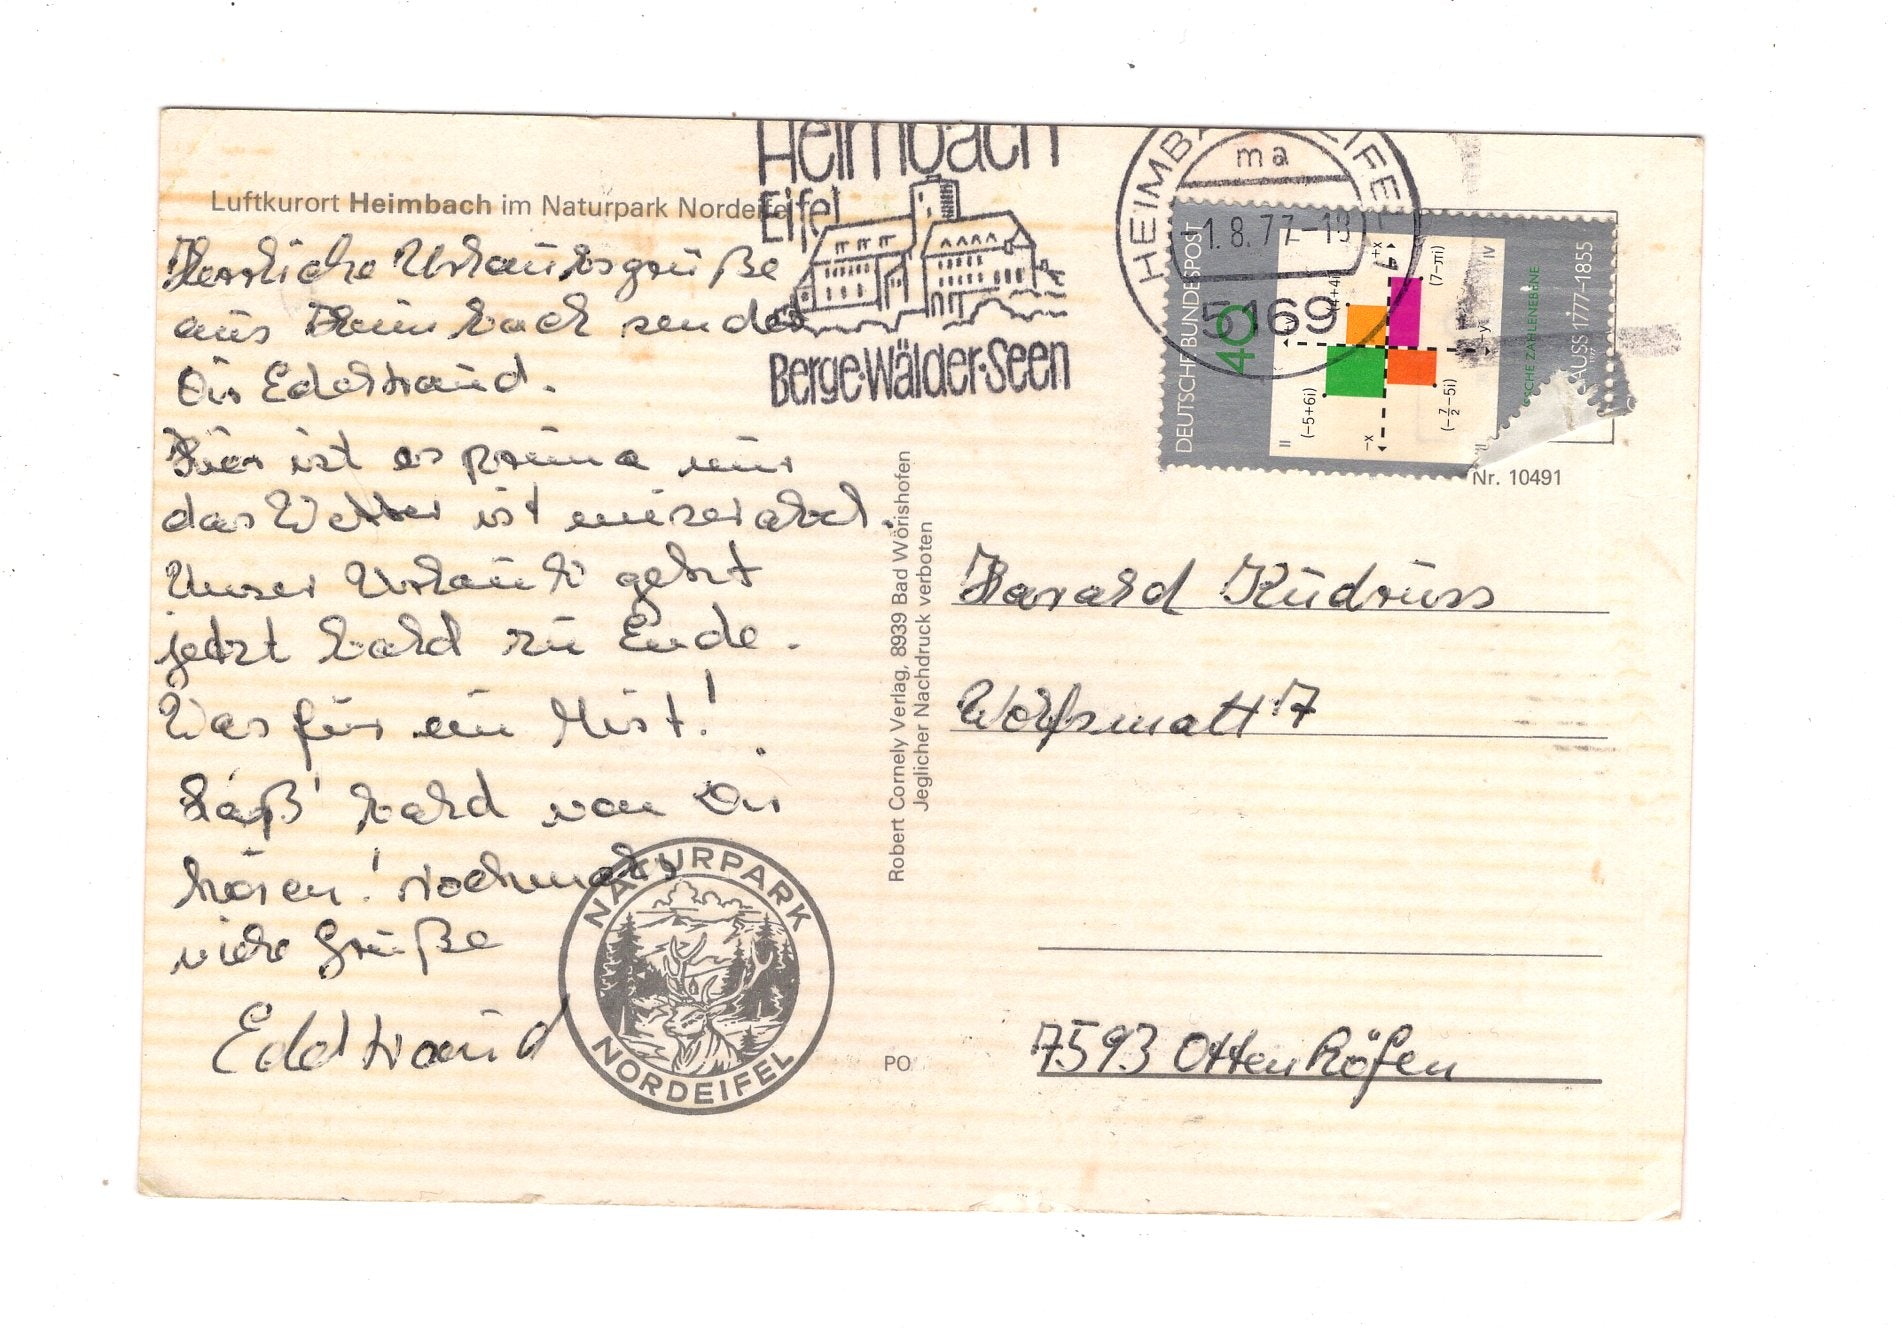 Luftkurort Heimbach im Naturpark Nordeifel
Herrliche Urlaubsgrüße
aus Heimbach sendet
Dir Edeltraud.
Hier ist es prima nur
das Wetter ist miserabel.
Unser Urlaub geht
jetzt bald zu Ende.
Was für ein Mist!
Laß' bald von Dir
hören! Nochmals
viele Grüße
Edeltraud
NATURPARK
NORDEIFEL
Heimbach
Eifel
Berge·Wälder·Seen
HEIMBACH EIFEL
ma
-1.8.77-18
5169
DEUTSCHE BUNDESPOST
40
+x
-x
+y
(7-πi)
(4+4i)
(-5+6i)
(-7/2-5i)
II
IV
SCHE ZAHLENEBENE
GAUSS 1777-1855
1977
Nr. 10491
Robert Cornely Verlag, 8939 Bad Wörishofen
Jeglicher Nachdruck verboten
PO
Harald Küdruss
Wolfsmatt 7
7593 Ottenhöfen